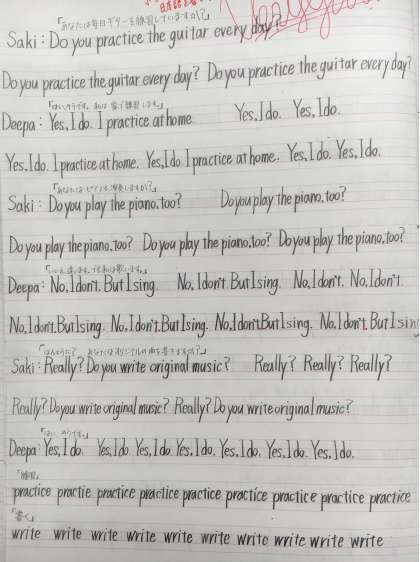 「あなたは毎日ギターを練習していますか?」
Saki: Do you practice the guitar every day?
Do you practice the guitar every day? Do you practice the guitar every day?
Deepa: Yes, I do. I practice at home. Yes, I do. Yes, I do.
Yes, I do. I practice at home. Yes, I do I practice at home. Yes, I do. Yes, I do.
「あなたはピアノも演奏しますか?」
Saki: Do you play the piano, too? Do you play the piano, too?
Do you play the piano, too? Do you play the piano, too? Do you play the piano, too?
Deepa: No, I don't. But I sing. No, I don't. But I sing. No, I don't. No, I don't.
No, I don't. But I sing. No, I don't. But I sing. No, I don't But I sing. No, I don't. But I sing
「ほんとうに? あなたはオリジナルの曲を書きますか?」
Saki: Really? Do you write original music? Really? Really? Really?
Really? Do you write original music? Really? Do you write original music?
Deepa: Yes, I do. Yes, I do Yes, I do Yes, I do. Yes, I do. Yes, I do. Yes, I do.
「練習」
practice practie practice practice practice practice practice practice practice
「書く」
write write write write write write write write write write